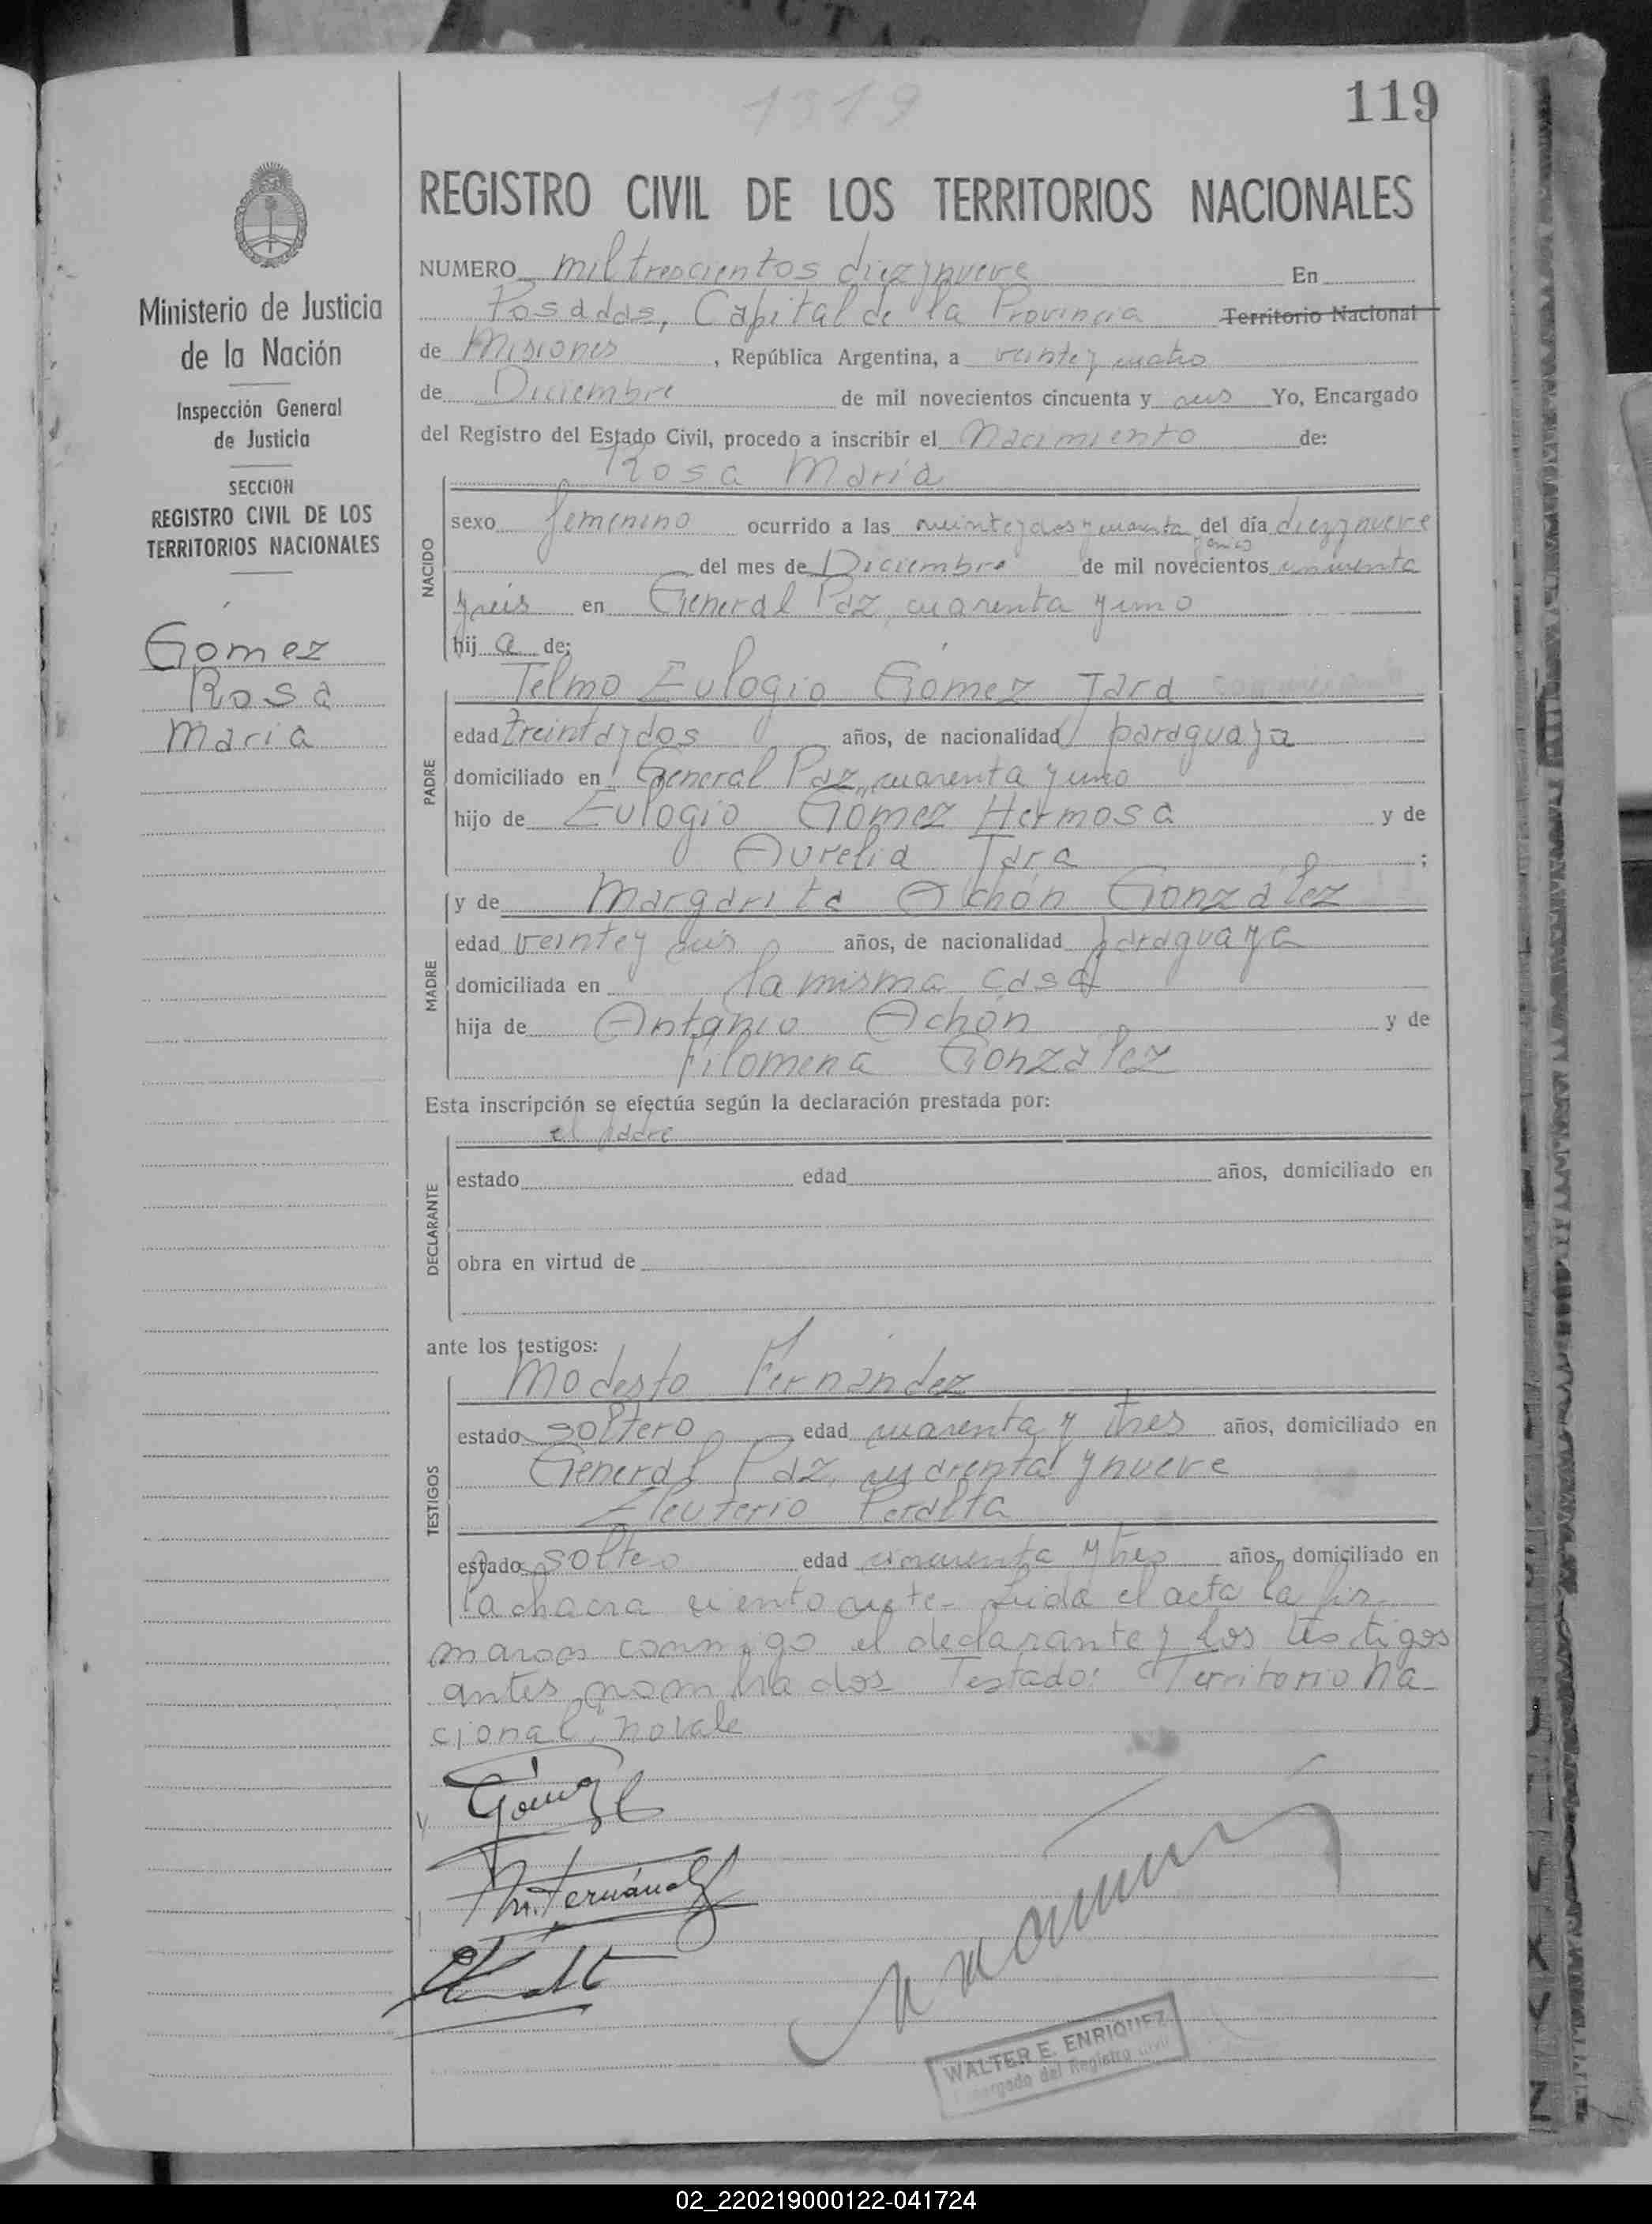 ACTAS
1319
119
REGISTRO CIVIL DE LOS TERRITORIOS NACIONALES
Ministerio de Justicia
de la Nación
Inspección General
de Justicia
SECCION
REGISTRO CIVIL DE LOS
TERRITORIOS NACIONALES
Gomez
Rosa
Maria
NUMERO mil trescientos diez y nueve En
Posadas, Capital de la Provincia Territorio Nacional
de Misiones, República Argentina, a veinte y cuatro
de Diciembre de mil novecientos cincuenta y seis Yo, Encargado
del Registro del Estado Civil, procedo a inscribir el Nacimiento de:
Rosa María
NACIDO
sexo femenino ocurrido a las veinte y dos y cuarenta del día diez y nueve
del mes de Diciembre de mil novecientos cincuenta
y seis en General Paz cuarenta y uno
hij a de:
Telmo Eulogio Gómez Jara
PADRE
edad treinta y dos años, de nacionalidad paraguaya
domiciliado en General Paz, cuarenta y uno
hijo de Eulogio Gómez Hermosa y de
Aurelia Jara ;
MADRE
y de Margarita Achón González
edad veinte y seis años, de nacionalidad paraguaya
domiciliada en la misma casa
hija de Antonio Achón y de
Filomena González
Esta inscripción se efectúa según la declaración prestada por:
el padre
DECLARANTE
estado edad años, domiciliado en
obra en virtud de
ante los testigos:
Modesto Fernández
TESTIGOS
estado soltero edad cuarenta y tres años, domiciliado en
General Paz, cuarenta y nueve
Eleuterio Peralta
estado soltero edad cincuenta y tres años, domiciliado en
la chacra ciento siete- Leida el acta la fir-
maron conmigo el declarante y los testigos
antes nombrados Testado: "Territorio Na-
cional", no vale
Gómez
M. Fernández
WALTER E. ENRIQUEZ
Encargado del Registro Civil
02_220219000122-041724